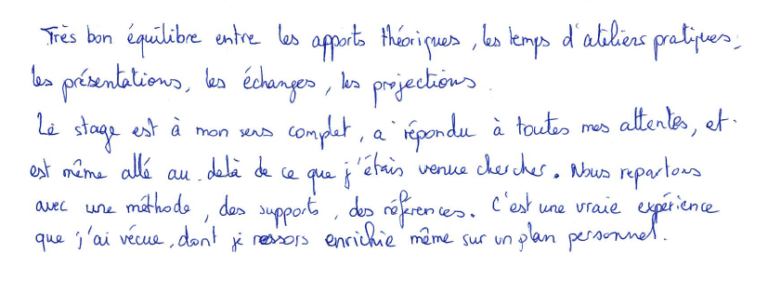 Très bon équilibre entre les apports théoriques, les temps d'ateliers pratiques,
les présentations, les échanges, les projections.
Le stage est à mon sens complet, a répondu à toutes mes attentes, et
est même allé au-delà de ce que j'étais venue chercher. Nous repartons
avec une méthode, des supports, des références. C'est une vraie expérience
que j'ai vécue, dont je ressors enrichie même sur un plan personnel.